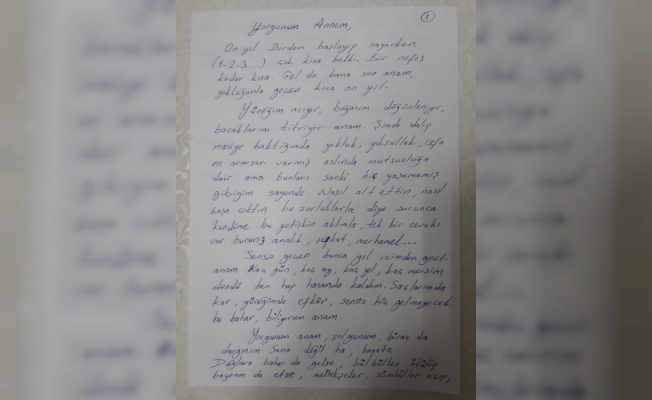 1
Yorgunum Annem,
On yıl. Birden başlayıp sayarken
(1-2-3...) çok kısa belki. Bir nefes
kadar kısa. Gel de bana sor anam,
yokluğunla geçen koca on yıl.
Yüreğim acıyor, boğazım düğümleniyor,
bacaklarım titriyor anam. Şimdi dalıp
maziye baktığımda yokluk, yoksulluk, cefa
ne ararsan varmış aslında mutsuzluğa
dair ama bunları sanki hiç yaşamamış
gibiyim sayende. Nasıl alt ettin, nasıl
başa çıktın bu zorluklarla diye sorunca
kendime bu yetişkin aklımla, tek bir cevabı
var bunun; analık, şefkat, merhamet...
Sensiz geçen bunca yıl içimden geçti
anam. Kaç gün, kaç ay, kaç yıl, kaç mevsim
döndü ben hep hazanda kaldım. Saçlarımda
kar, yüreğimde efkar, sensiz hiç gelmeyecek
bu bahar, biliyorum anam.
Yorgunum anam, solgunum, biraz da
dargınım sana değil ha, hayata
Dağlara bahar da gelse, bülbüller ötüşüp
bayram da etse, menekşeler, sümbüller açıp,